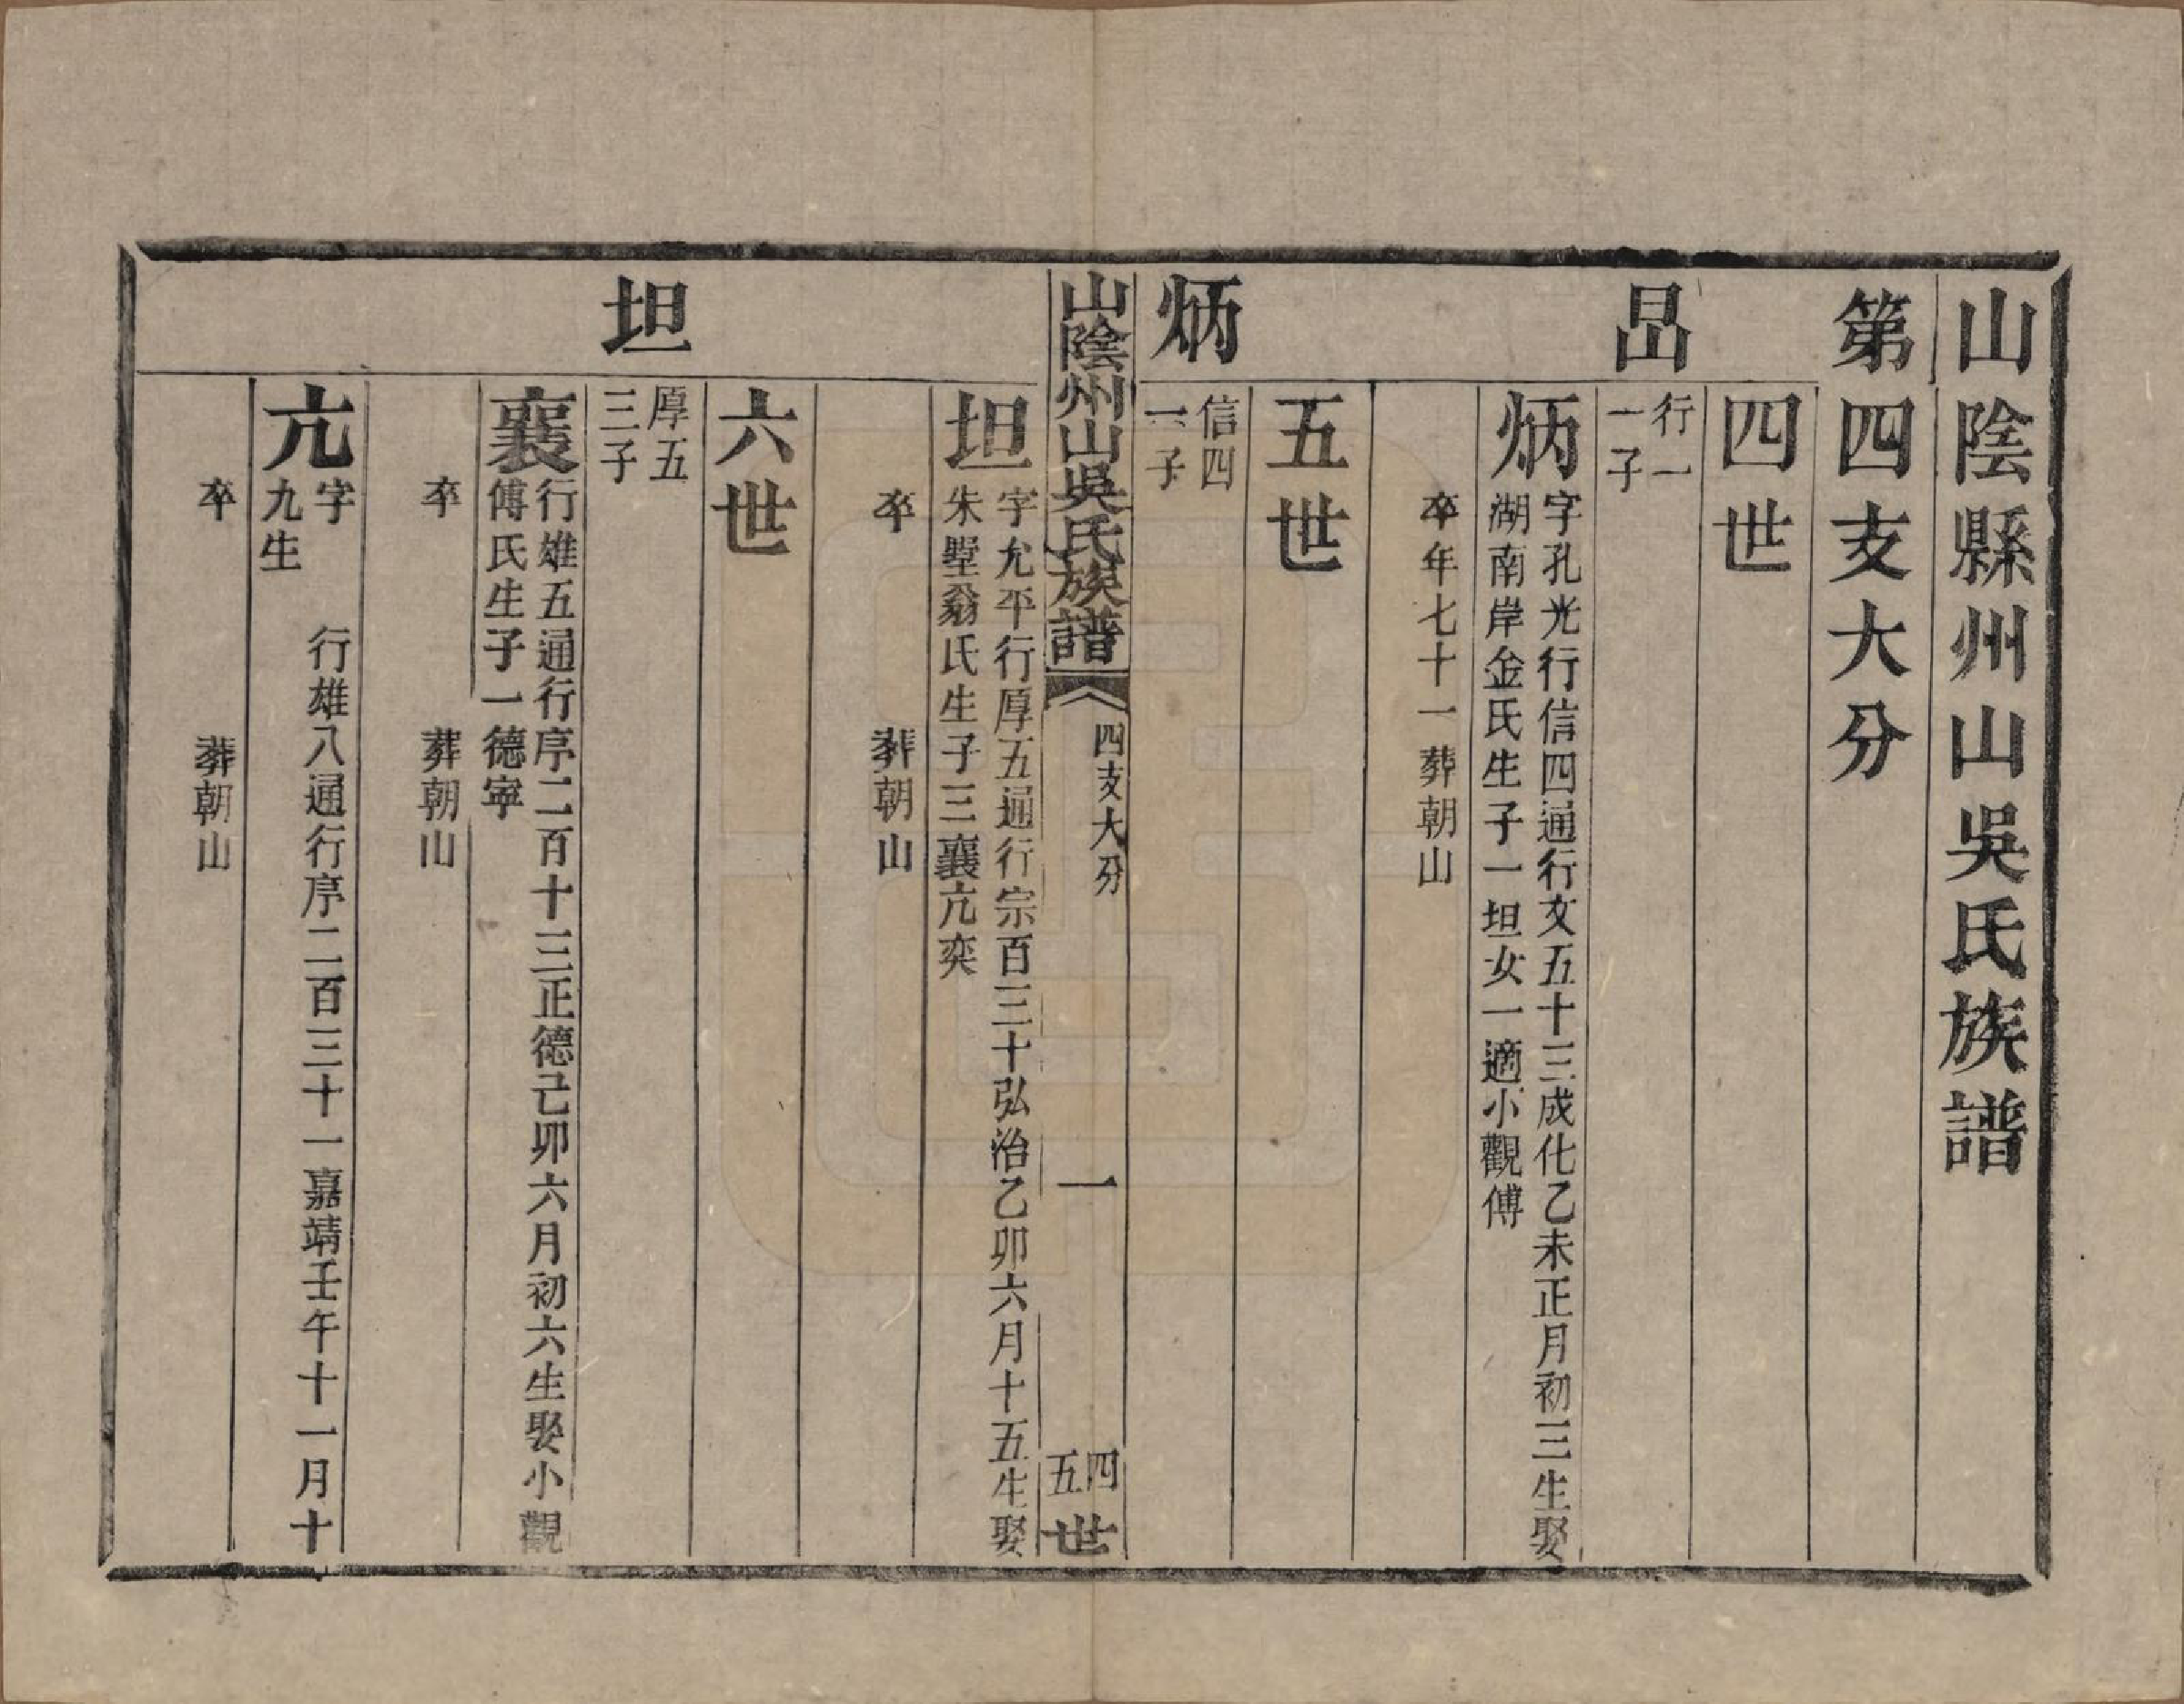 山陰縣州山吳氏族譜
第四支大分
四世
昆
行一
一子
炳
字孔光行信四通行文五十三成化乙未正月初三生娶
湖南岸金氏生子一坦女一適小觀傅
卒年七十一葬朝山
五世
炳
信四
一子
山陰州山吳氏族譜
四支大分
一
四
五
世
坦
字允平行厚五通行宗百三十弘治乙卯六月十五生娶
朱墅翁氏生子三襄亢奕
卒
葬朝山
六世
坦
厚五
三子
襄
行雄五通行序二百十三正德己卯六月初六生娶小觀
傅氏生子一德寧
卒
葬朝山
亢
字
行雄八通行序二百三十一嘉靖壬午十一月十
九生
卒
葬朝山